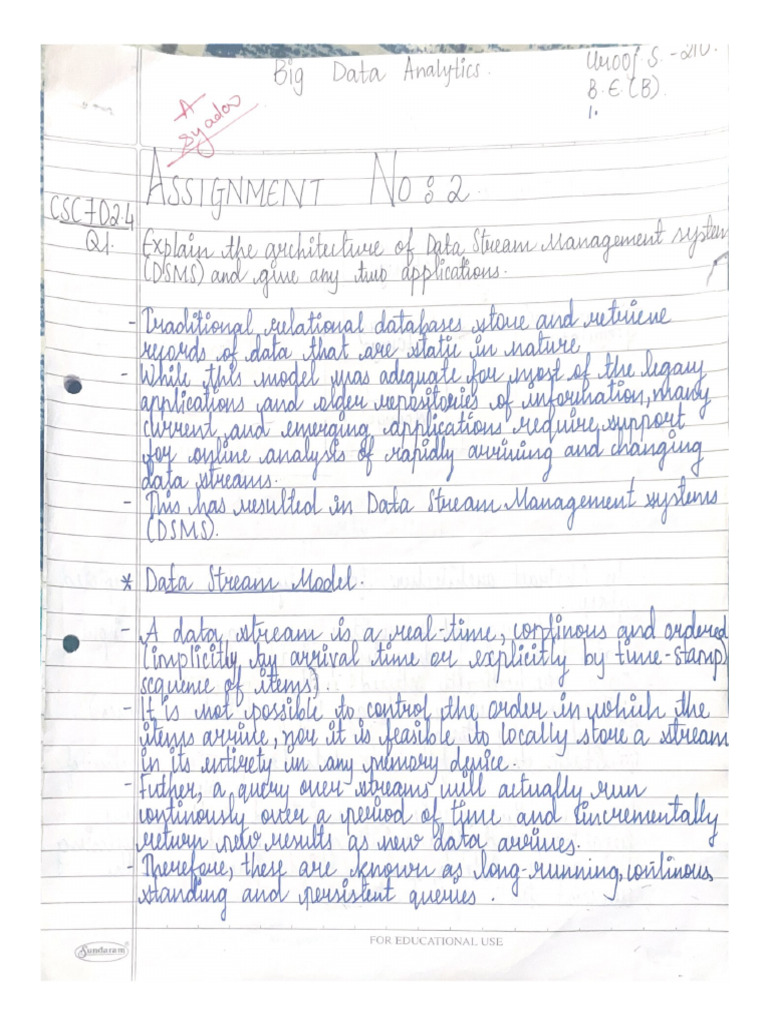 Big Data Analytics.
Uroof. S. - 210.
B.E.(B).
1.
A
Syadav
ASSIGNMENT No: 2
CSC7D2.4
Q1. Explain the architecture of Data Stream Management system
(DSMS) and give any two applications.
- Traditional relational databases store and retrieve
records of data that are static in nature
- While this model was adequate for most of the legacy
applications and older repositories of information, many
current and emerging applications require support
for online analysis of rapidly arriving and changing
data streams.
- This has resulted in Data Stream Management systems
(DSMS).
* Data Stream Model.
- A data stream is a real-time, continous and ordered
(implicitly by arrival time or explicitly by time-stamp)
sequence of items).
- It is not possible to control the order in which the
items arrive, nor it is feasible to locally store a stream
in its entirety in any memory device.
- Futher, a query over streams will actually run
continously over a period of time and incrementally
return new results as new data arrives.
- Therefore, these are known as long-running, continous,
standing and persistent queries.
Sundaram
FOR EDUCATIONAL USE